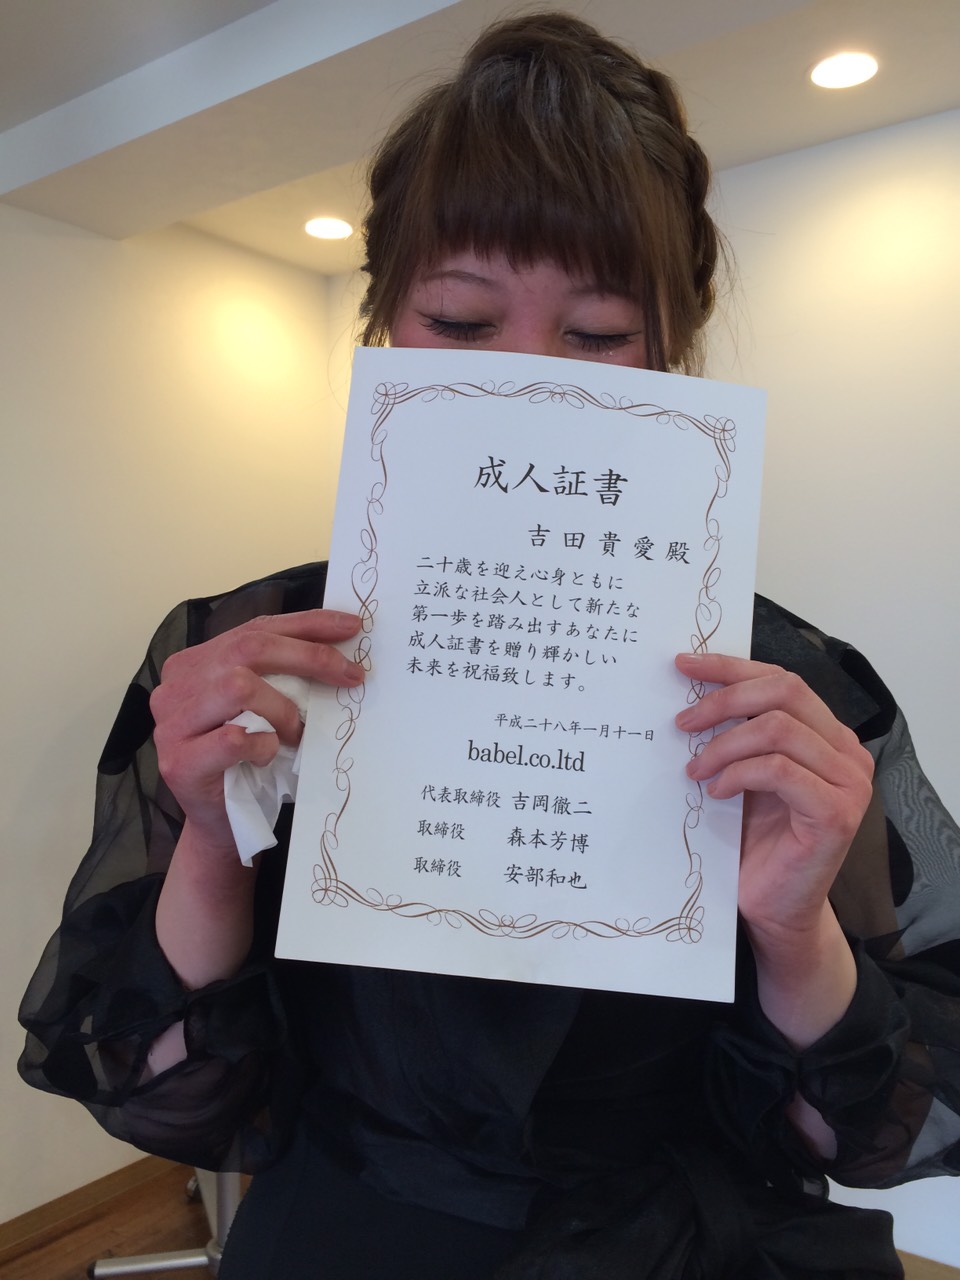 成人証書
吉田貴愛殿
二十歳を迎え心身ともに
立派な社会人として新たな
第一歩を踏み出すあなたに
成人証書を贈り輝かしい
未来を祝福致します。
平成二十八年一月十一日
babel.co.ltd
代表取締役 吉岡徹二
取締役 森本芳博
取締役 安部和也